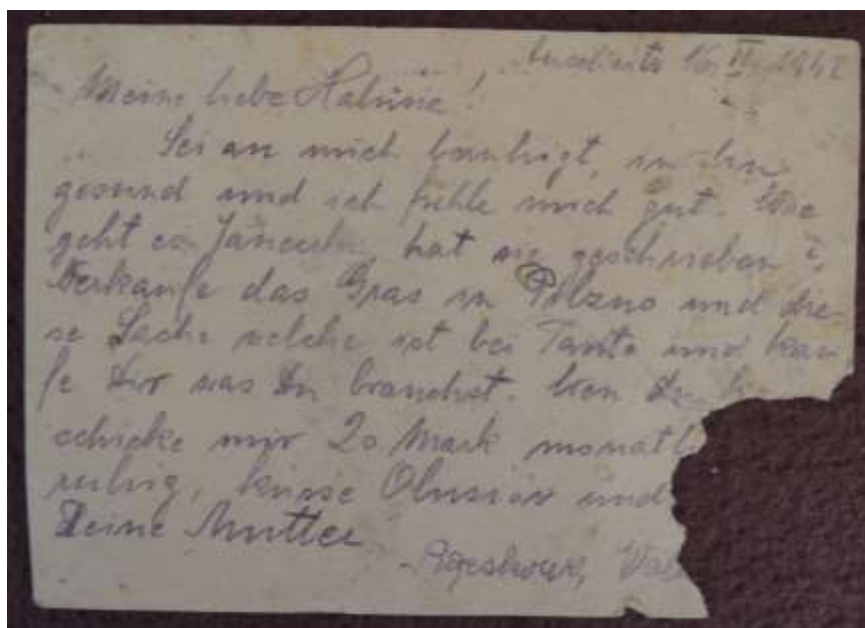 Auschwitz 16 IV 1942
Meine liebe Halusie!
Sei an mich beruhigt, ich bin
gesund und ich fühle mich gut. Wie
geht es hat sie geschrieben?
Verkaufe das Gras in Pilzno und die-
se Sache welche ist bei Tante und kau-
fe Dir was Du brauchst. Wen Du
schicke mir 20 Mark monatl
ruhig, küsse und
Deine Mutter